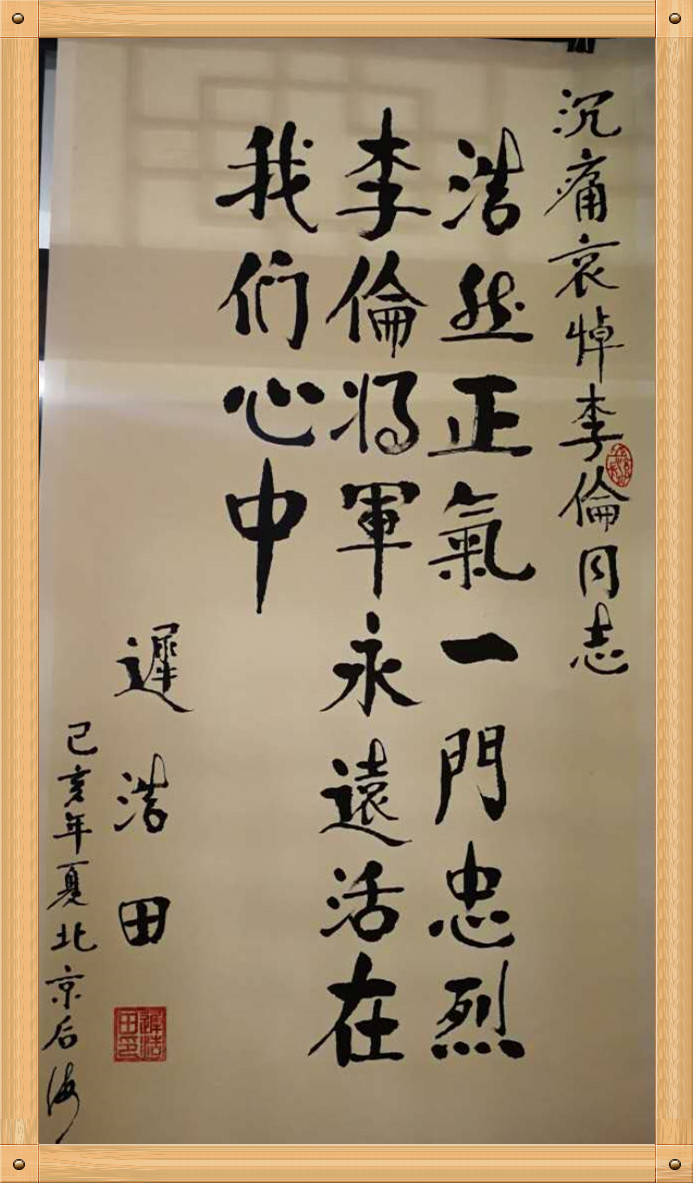 沉痛哀悼李倫同志
浩然正氣一門忠烈
李倫将軍永遠活在
我们心中
遲浩田
己亥年夏北京后海
遲浩田印